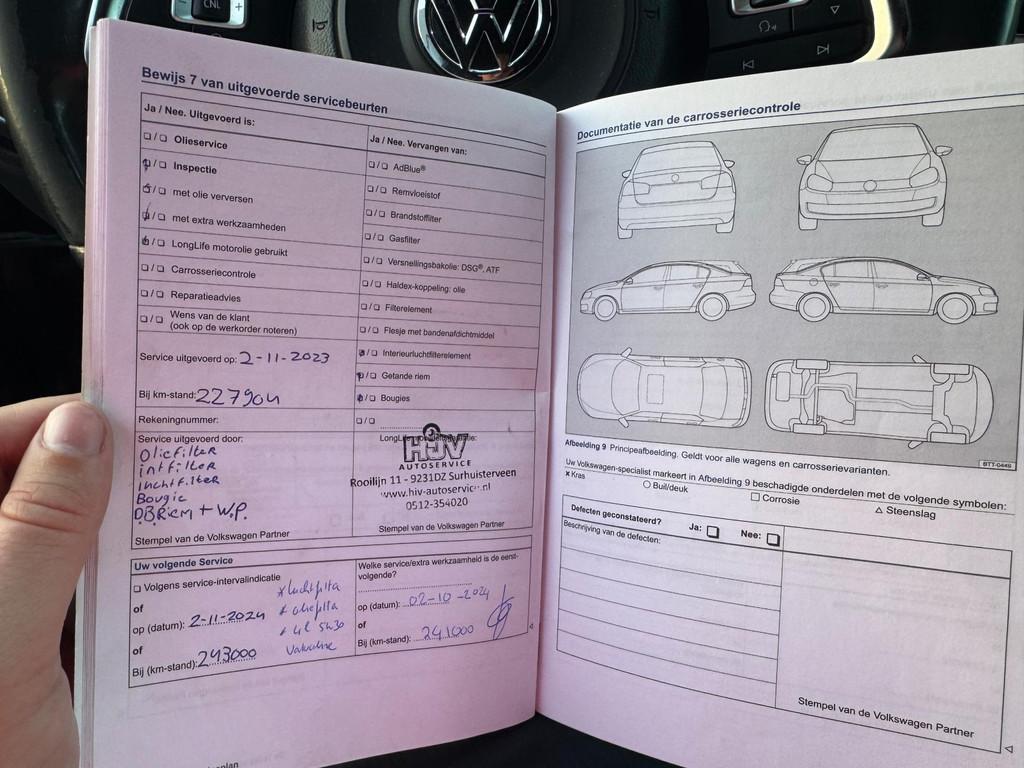 CNL
Bewijs 7 van uitgevoerde servicebeurten
Ja / Nee. Uitgevoerd is:
Olieservice
Inspectie
met olie verversen
met extra werkzaamheden
LongLife motorolie gebruikt
Carrosseriecontrole
Reparatieadvies
Wens van de klant
(ook op de werkorder noteren)
Service uitgevoerd op: 2-11-2023
Bij km-stand: 227904
Rekeningnummer:
Service uitgevoerd door:
Oliefilter
intfilter
luchtfilter
Bougie
D.B.Riem + W.P.
Stempel van de Volkswagen Partner
Ja / Nee. Vervangen van:
AdBlue®
Remvloeistof
Brandstoffilter
Gasfilter
Versnellingsbakolie: DSG®, ATF
Haldex-koppeling: olie
Filterelement
Flesje met bandenafdichtmiddel
Interieurluchtfilterelement
Getande riem
Bougies
HJV
AUTOSERVICE
Rooilijn 11 - 9231DZ Surhuisterveen
www.hjv-autoservice.nl
0512-354020
Stempel van de Volkswagen Partner
Uw volgende Service
Volgens service-intervalindicatie
of
op (datum): 2-11-2024
of
Bij (km-stand): 243000
* luchtfilta
* oliefilta
* 4l 5w30
Valvoline
Welke service/extra werkzaamheid is de eerst-
volgende?
op (datum): 02-10-2024
of
Bij (km-stand): 241000
Documentatie van de carrosseriecontrole
BTT-0449
Afbeelding 9 Principeafbeelding. Geldt voor alle wagens en carrosserievarianten.
Uw Volkswagen-specialist markeert in Afbeelding 9 beschadigde onderdelen met de volgende symbolen:
× Kras ○ Buil/deuk □ Corrosie △ Steenslag
Defecten geconstateerd? Ja: Nee:
Beschrijving van de defecten:
Stempel van de Volkswagen Partner